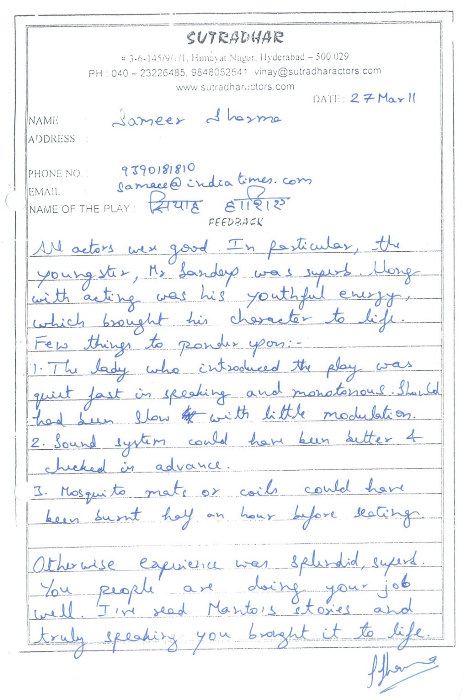 SUTRADHAR
# 3-6-145/9/7/1, Himayat Nagar, Hyderabad – 500 029
PH : 040 – 23226485, 9848052541 vinay@sutradharactors.com
www.sutradharactors.com
DATE: 27 Mar 11
NAME Sameer Sharma
ADDRESS :
PHONE NO. : 9390181810
EMAIL sameee@indiatimes.com
NAME OF THE PLAY: सियाह हाशिए
FEEDBACK
All actors were good. In particular, the
youngster, Mr Sandeep was superb. Along
with acting was his youthful energy,
which brought his character to life.
Few things to ponder upon:-
1. The lady who introduced the play was
quiet fast in speaking and monotonous. Should
had been slow with little modulation.
2. Sound system could have been better &
checked in advance.
3. Mosquito mats or coils could have
been burnt half an hour before seating.
Otherwise experience was splendid, superb.
You people are doing your job
well. I've read Manto's stories and
truly speaking you brought it to life.
SSharma